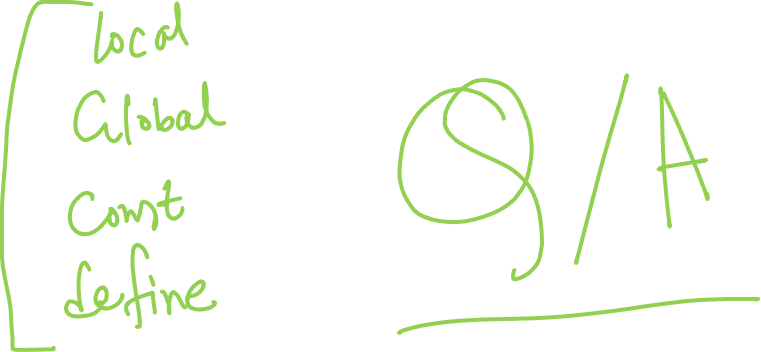 Local
Global
Const
define
Q/A